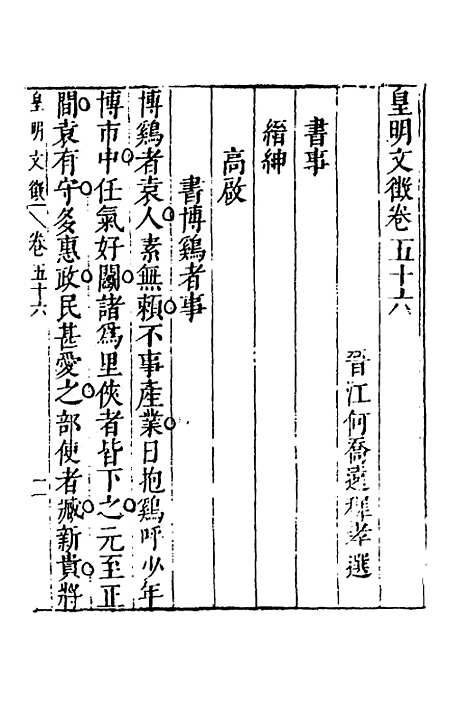 皇明文徵卷五十六
晉江何喬遠稺孝選
書事
縉紳
高啟
書博鷄者事
博鷄者袁人素無賴不事產業日抱鷄呼少年
博市中任氣好鬬諸爲里俠者皆下之元至正
間袁有守多惠政民甚愛之部使者臧新貴將
皇明文徵 卷五十六 一